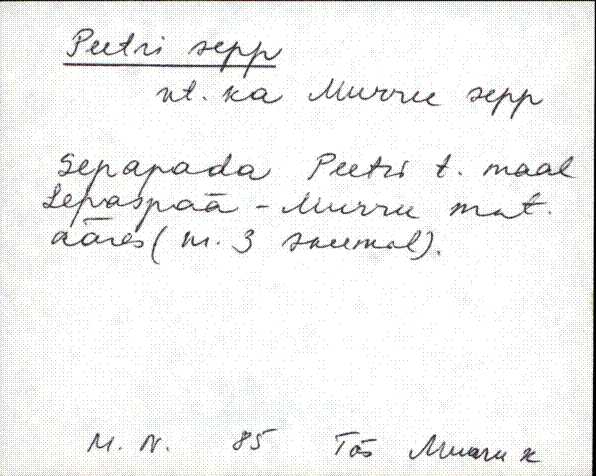 Peetri sepp
vt. ka Murru sepp
Sepapada Peetri t. maal
Lepaspää - Murru mnt.
ääres (nr. 3 skeemal).
M. N. 85 Tõs Muaru k